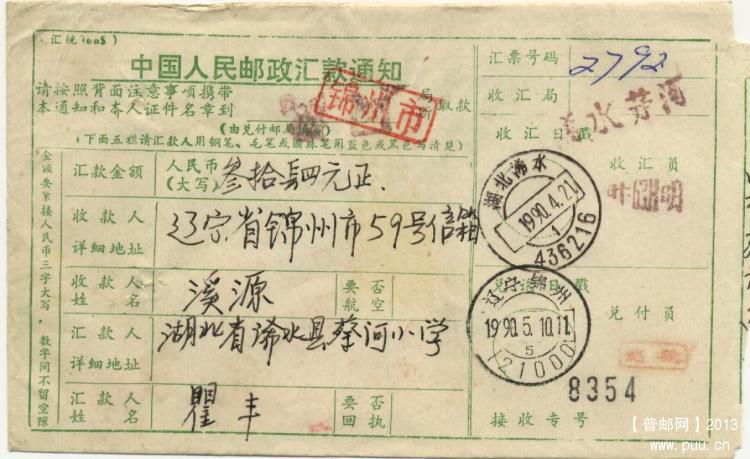 （汇统1005）
中国人民邮政汇款通知
请按照背面注意事项携带
本通知和本人证件名章到
局
所
取款
锦州市
（由兑付邮局填写）
（下面五栏请汇款人用钢笔、毛笔或圆珠笔用蓝色或黑色书写清楚）
汇款金额
人民币
（大写）
叁拾
四元正
收款人
详细地址
辽宁省锦州市59号信箱
收款人
姓名
溪源
要否
航空
汇款人
详细地址
湖北省浠水县蔡河小学
汇款人
姓名
瞿丰
要否
回执
金额要紧接人民币三字大写，数字间不留空隙
汇票号码
2792
收汇局
水
河
收汇日戳
收汇员
叶
明
湖北浠水
1990.4.21
1
436216
兑汇日戳
兑付员
辽宁锦州
1990.5.10.11
5
121000
8354
接收专号
【普邮网】2013
www.puu.cn